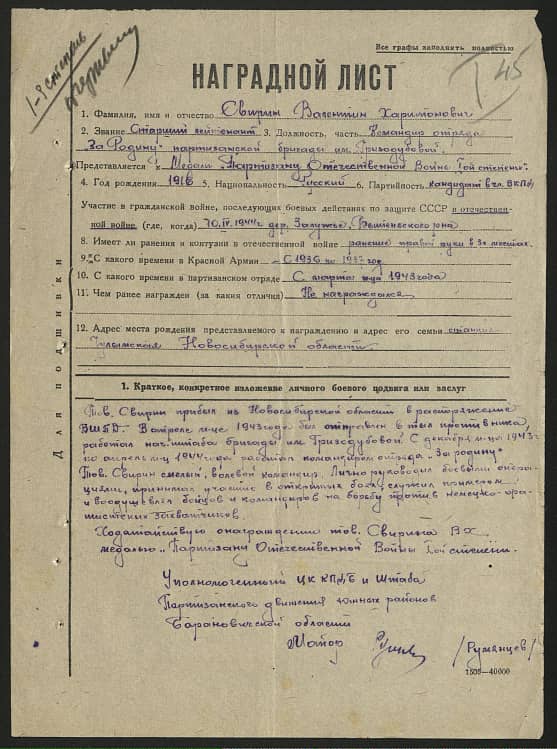 1-й степень
Все графы заполнять полностью
I 45
НАГРАДНОЙ ЛИСТ
1. Фамилия, имя и отчество Свирин Валентин Харитонович
2. Звание Старший лейтенант 3. Должность, часть Командир отряда
"За Родину" партизанской бригады им. Гризодубовой.
Представляется к Медали "Партизану Отечественной Войны" I-ой степени.
4. Год рождения 1916 5. Национальность Русский 6. Партийность кандидат в чл. ВКП(б)
Участие в гражданской войне, последующих боевых действиях по защите СССР и отечествен-
ной войне (где, когда) 10.IV.1944 г. дер. Залужье,
8. Имеет ли ранения и контузии в отечественной войне ранение правой руки в 3х местах.
9. С какого времени в Красной Армии С 1936 по 1937 год
10. С какого времени в партизанском отряде С марта м-ца 1943 года
11. Чем ранее награжден (за какия отличия) Не награждался
12. Адрес места рождения представляемого к награждению и адрес его семьи станция
Чулымская Новосибирской области
Для подшивки
1. Краткое, конкретное изложение личного боевого подвига или заслуг
Тов. Свирин прибыл из Новосибирской области в распоряжение
БШПД. В апреле м-це 1943 года был отправлен в тыл противника,
работал нач. штаба бригады им Гризодубовой С декабря м-ца 1943 г.
по апрель м-ц 1944 года работал командиром отряда "За родину"
Тов. Свирин смелый, волевой командир. Лично руководил боевыми опера-
циями, принимал участие в открытых боях, служил примером
и воодушевлял бойцов и командиров на борьбу против немецко-фа-
шистских захватчиков.
Ходатайствую о награждении тов. Свирина В.Х.
медалью "Партизану Отечественной Войны" I-ой степени.
Уполномоченный ЦК КП(б)Б и Штаба
Партизанского движения южных районов
Барановичской области
Майор /Румянцев/
1505—40000